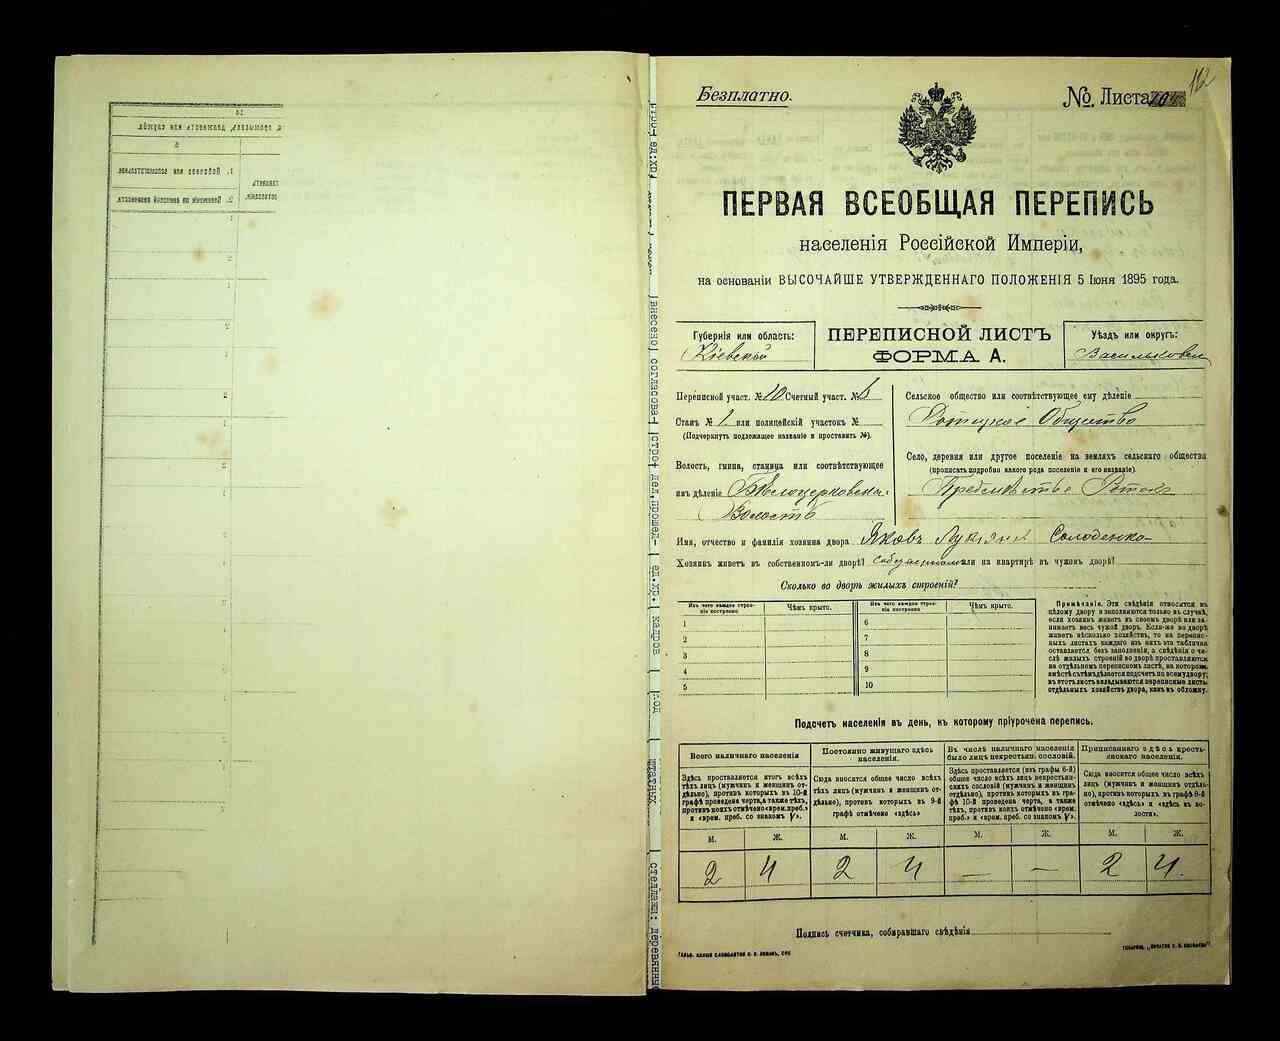 Безплатно.
№ Листа
112
ПЕРВАЯ ВСЕОБЩАЯ ПЕРЕПИСЬ
населенія Россійской Имперіи,
на основаніи ВЫСОЧАЙШЕ УТВЕРЖДЕННАГО ПОЛОЖЕНІЯ 5 Іюня 1895 года.
Губернія или область:
Кіевской
ПЕРЕПИСНОЙ ЛИСТЪ
ФОРМА А.
Уѣздъ или округъ:
Васильковск
Переписной участ. № 10 Счетный участ. № 6
Станъ № 1 или полицейскій участокъ №
(Подчеркнуть подлежащее названіе и проставить №).
Волость, гмина, станица или соотвѣтствующее
имъ дѣленіе Бѣлоцерковска
Волость
Сельское общество или соотвѣтствующее ему дѣленіе
Ротокское Общество
Село, деревня или другое поселеніе на земляхъ сельскаго общества
(прописать подробно какого рода поселеніе и его названіе).
Предмѣстье Роток
Имя, отчество и фамилія хозяина двора Яковъ Лукіянъ Солоденко
Хозяинъ живетъ въ собственномъ-ли дворѣ? собственномъ или на квартирѣ въ чужомъ дворѣ?
Сколько во дворѣ жилыхъ строеній?
Изъ чего каждое строеніе построено.
Чѣмъ крыто.
Изъ чего каждое строеніе построено.
Чѣмъ крыто.
1
2
3
4
5
6
7
8
9
10
Примѣчаніе. Эти свѣдѣнія относятся къ
цѣлому двору и заполняются только въ случаѣ,
если хозяинъ живетъ въ своемъ дворѣ или за-
нимаетъ весь чужой дворъ. Если-же во дворѣ
живетъ нѣсколько хозяйствъ, то на перепис-
ныхъ листахъ каждаго изъ нихъ эта табличка
оставляется безъ заполненія, а свѣдѣнія о чи-
слѣ жилыхъ строеній во дворѣ проставляются
на отдѣльномъ переписномъ листѣ, на которомъ
вмѣстѣ съ тѣмъ дѣлается подсчетъ по всему двору;
въ этотъ листъ вкладываются переписные листы
отдѣльныхъ хозяйствъ двора, какъ въ обложку.
Подсчетъ населенія въ день, къ которому пріурочена перепись.
Всего наличнаго населенія
Постоянно живущаго здѣсь населенія.
Въ числѣ наличнаго населенія было лицъ некрестьян. сословій.
Приписаннаго здѣсь крестьянскаго населенія.
Здѣсь проставляется итогъ всѣхъ
тѣхъ лицъ (мужчинъ и женщинъ от-
дѣльно), противъ которыхъ въ 10-й
графѣ проведена черта, а также тѣхъ,
противъ коихъ отмѣчено «врем. преб.»
и «врем. преб. со знакомъ V».
Сюда вносится общее число всѣхъ
тѣхъ лицъ (мужчинъ и женщинъ от-
дѣльно), противъ которыхъ въ 9-й
графѣ отмѣчено «здѣсь»
Здѣсь проставляется (изъ графы 6-й)
общее число всѣхъ лицъ некрестьян-
скихъ сословій (мужчинъ и женщинъ
отдѣльно), противъ которыхъ въ гра-
фѣ 10-й проведена черта, а также
тѣхъ, противъ коихъ отмѣчено «врем.
преб.» и «врем. преб. со знакомъ V».
Сюда вносится общее число всѣхъ
лицъ (мужчинъ и женщинъ отдѣль-
но), противъ которыхъ въ графѣ 8-й
отмѣчено «здѣсь» и «здѣсь въ во-
лости».
М. Ж. М. Ж. М. Ж. М. Ж.
2 4 2 4 — — 2 4.
Подпись счетчика, собиравшаго свѣдѣнія